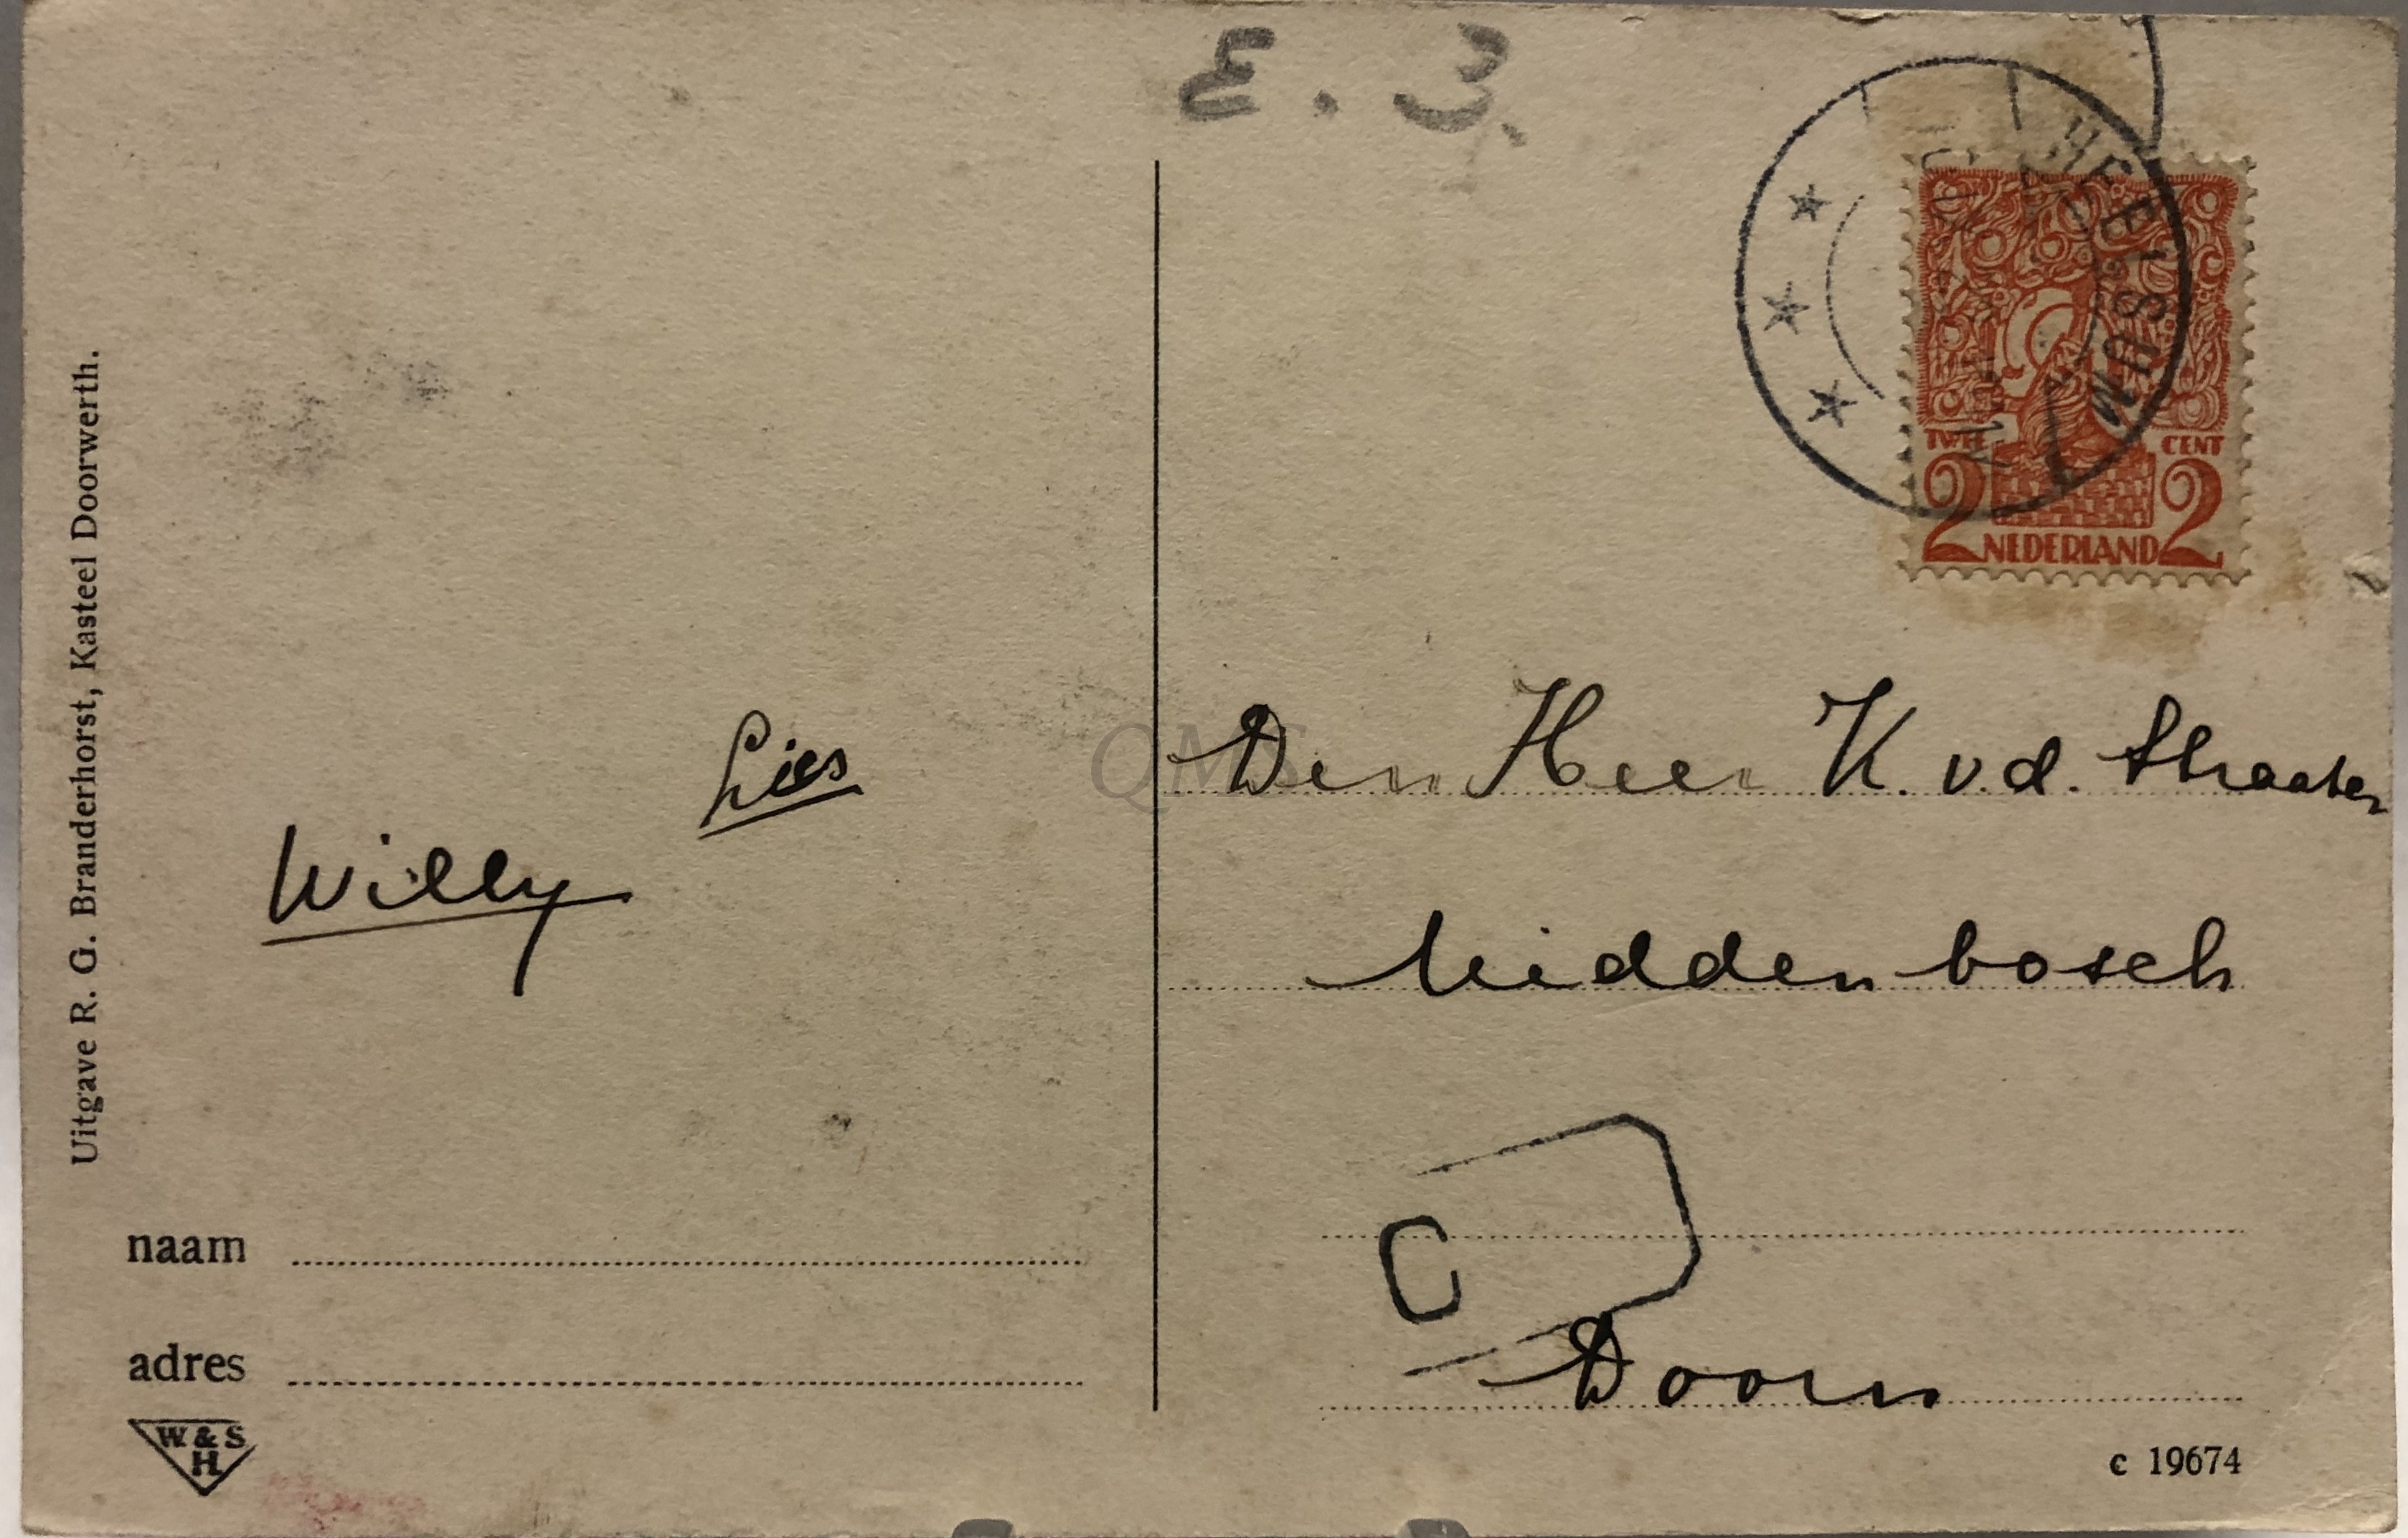 E. 3.
HEELSUM
TWEE CENT
2 NEDERLAND 2
Uitgave R. G. Branderhorst, Kasteel Doorwerth.
Lies
Willy
Den Heer K. v.d. Straaten
Middenbosch
C
Doorn
naam
adres
W & S
H
c 19674
QMS